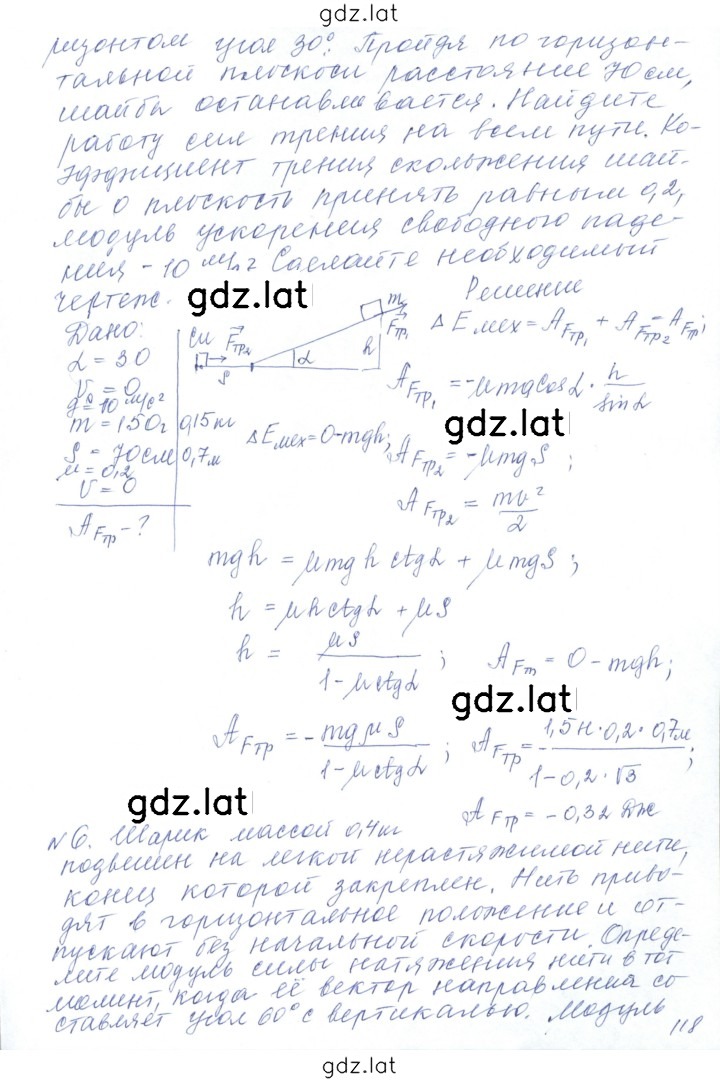 gdz.lat
ризонтом угол 30°. Пройдя по горизон-
тальной плоскоси расстояние 70 см,
шайба останавливается. Найдите
работу сил трения на всем пути. Ко-
эффициент трения скольжения шай-
бы о плоскость принять равным 0,2,
модуль ускорения свободного паде-
ния - 10 м/с² Сделайте необходимый
чертеж.
gdz.lat
Решение
Дано:
СИ
α = 30
V₀ = 0
g = 10 м/с²
m = 150г 0,15 кг
S = 70 см 0,7 м
μ = 0,2
V = 0
A Fтр - ?
F⃗тр₂ S α h m F⃗тр₁
Δ Eмех = A Fтр₁ + A Fтр₂ = A Fтр;
A Fтр₁ = -μmg cosα · h/sinα
gdz.lat
Δ Eмех = 0 - mgh;
A Fтр₂ = -μmgS ;
A Fтр₂ = mv²/2
mgh = μmgh ctgα + μmgS ;
h = μh ctgα + μS
h = μS/(1 - μctgα) ; A Fт = 0 - mgh;
gdz.lat
A Fтр = - mgμS/(1 - μctgα) ; A Fтр = - 1,5н · 0,2 · 0,7м/(1 - 0,2 · √3) ;
A Fтр = - 0,32 Дж
gdz.lat
№6. Шарик массой 0,4 кг
подвешен на легкой нерастяжимой нити,
конец которой закреплен. Нить приво-
дят в горизонтальное положение и от-
пускают без начальной скорости. Опреде-
лите модуль силы натяжения нити в тот
момент, когда её вектор направления со
ставляет угол 60° с вертикалью. Модуль
118
gdz.lat